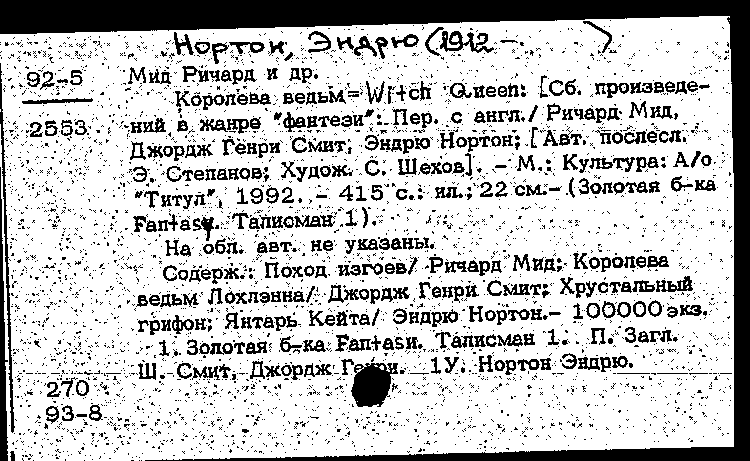 Нортон, Эндрю (1912 - )
92-5 Мид Ричард и др.
Королева ведьм=Witch Queen: [Сб. произведе-
2553 ний в жанре "фантези": Пер. с англ./ Ричард Мид,
Джордж Генри Смит, Эндрю Нортон; [Авт. послесл.
Э. Степанов; Худож. С. Шехов]. - М.: Культура: А/о
"Титул", 1992. - 415 с.: ил.; 22 см.- (Золотая б-ка
Fantasy. Талисман 1).
На обл. авт. не указаны.
Содерж.: Поход изгоев/ Ричард Мид; Королева
ведьм Лохлэнна/ Джордж Генри Смит; Хрустальный
грифон; Янтарь Кейта/ Эндрю Нортон.- 100000 экз.
1. Золотая б-ка Fantasи. Талисман 1. П. Загл.
Ш. Смит, Джордж Генри. 1У. Нортон Эндрю.
270
93-8